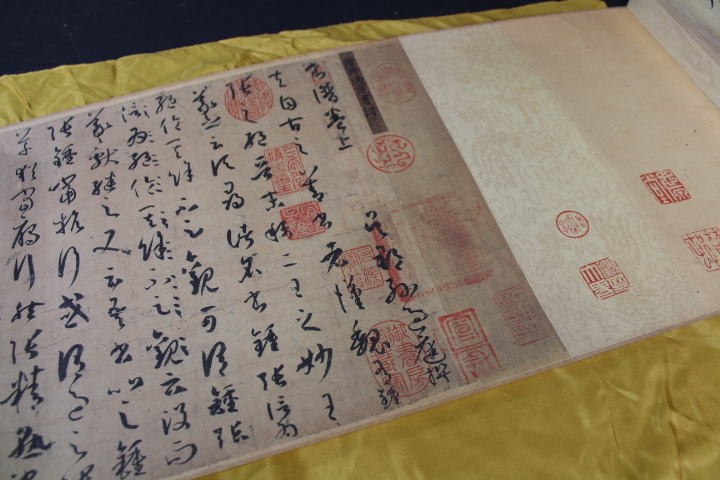 書譜卷上
吳郡孫過庭撰
夫自古之善書者漢魏有鍾
張之絕晉末稱二王之妙王
羲之云頃尋諸名書鍾張信為
絕倫其餘不足觀可謂鍾張
信為絕倫其餘不足觀云沒而
羲獻繼之又云吾書比之鍾
張鍾當抗行或謂過之張
草猶當雁行然張精熟